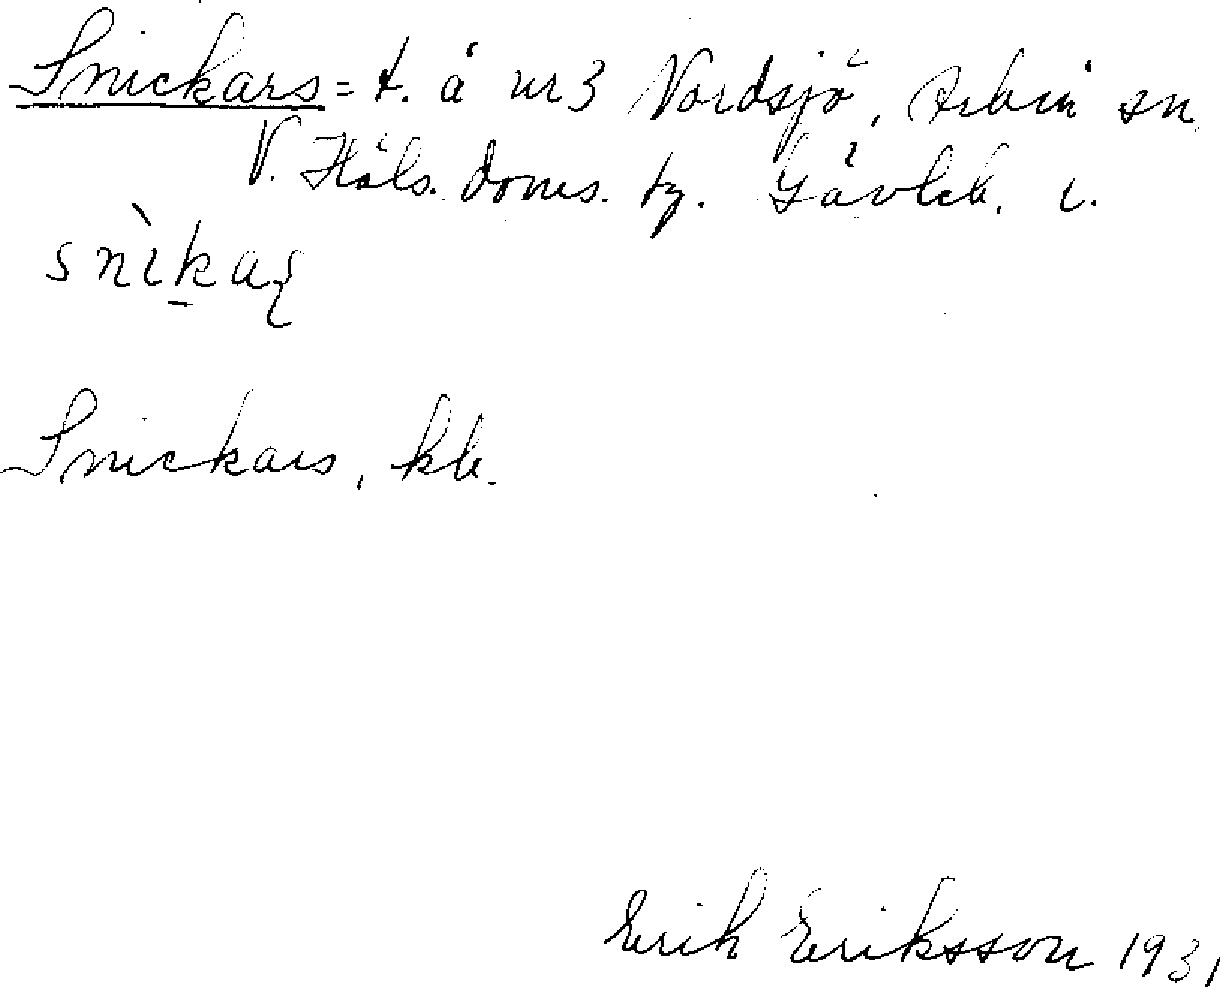 Snickars = t. å nr 3 Nordsjö, Arbrå sn
V. Häls. doms. tg. Gävleb. l.
snìk̠aʂ
Snickars, kb.
Erik Eriksson 1931